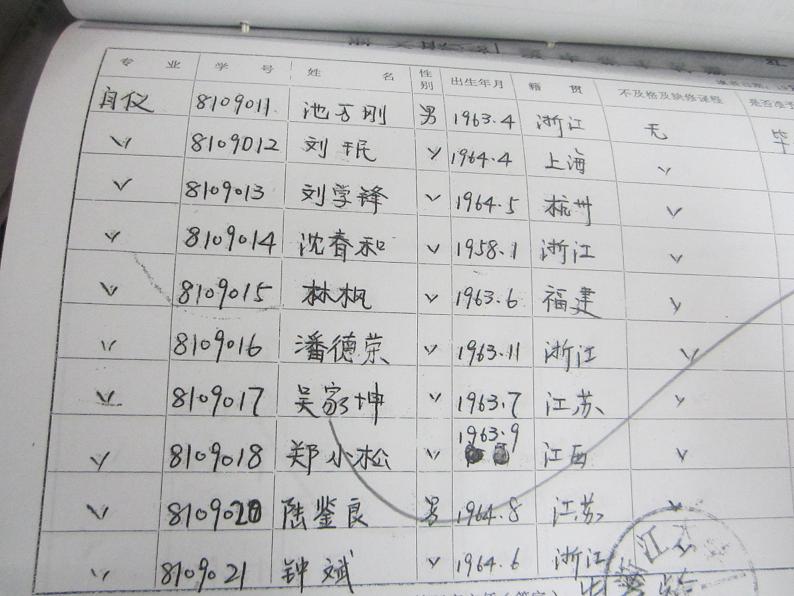 专 业 学 号 姓 名 性别 出生年月 籍 贯 不及格及缺修课程
自仪 8109011 池万刚 男 1963.4 浙江 无 毕
√ 8109012 刘珉 √ 1964.4 上海 √
√ 8109013 刘学锋 √ 1964.5 杭州 √
√ 8109014 沈春和 √ 1958.1 浙江 √
√ 8109015 林枫 √ 1963.6 福建 √
√ 8109016 潘德荣 √ 1963.11 浙江 √
√ 8109017 吴家坤 √ 1963.7 江苏 √
√ 8109018 郑小松 √ 1963.9 江西 √
√ 8109020 陆鉴良 男 1964.8 江苏 √
√ 8109021 钟斌 √ 1964.6 浙江 √